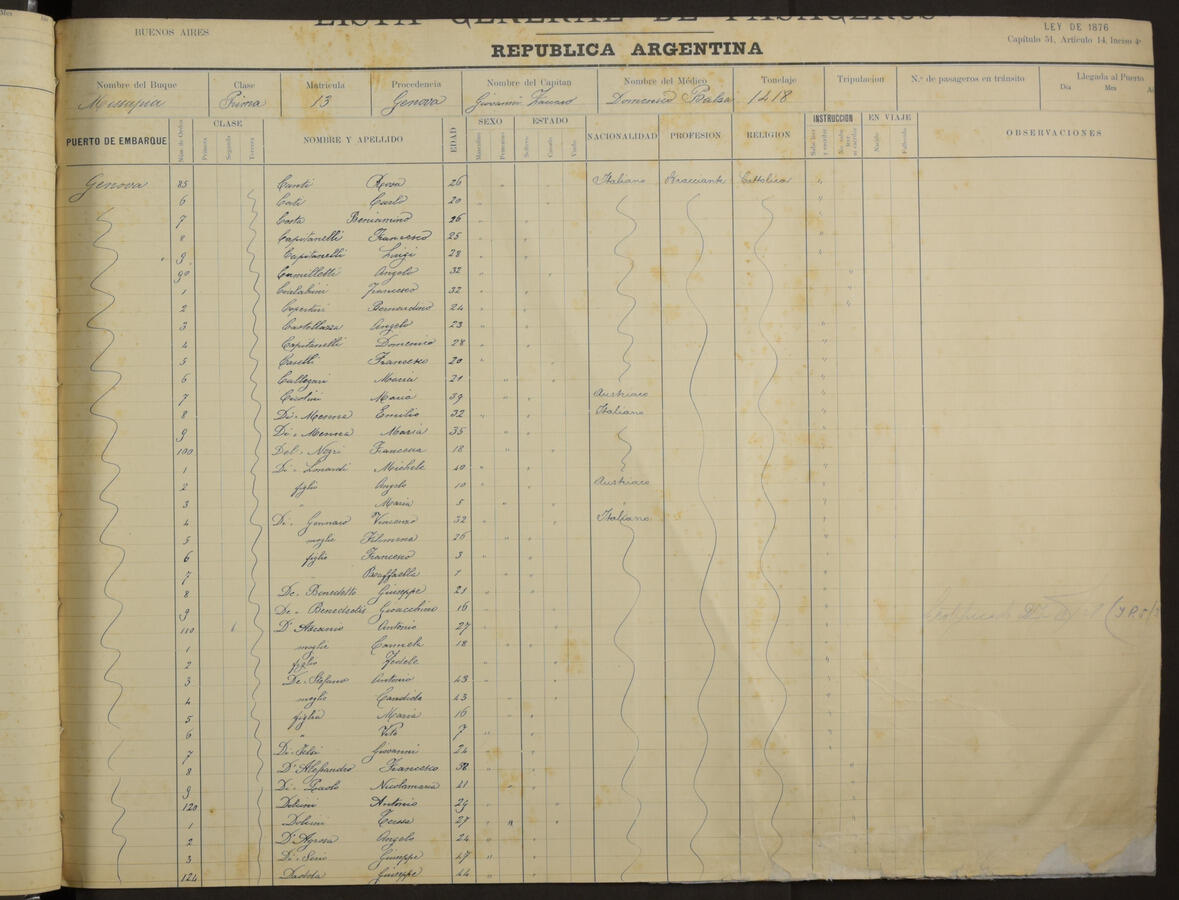 LISTA GENERAL DE PASAGEROS
BUENOS AIRES
LEY DE 1876
REPUBLICA ARGENTINA
Capítulo 51, Artículo 14, Inciso 4º
Nombre del Buque Clase Matricula Procedencia Nombre del Capitan Nombre del Médico Tonelaje Tripulacion N.º de pasageros en tránsito Llegada al Puerto
Dia Mes
Prima 13 Genova Giovanni Domenico Balsa 1418
PUERTO DE EMBARQUE Núm de Orden CLASE NOMBRE Y APELLIDO EDAD SEXO ESTADO NACIONALIDAD PROFESION RELIGION INSTRUCCION EN VIAJE OBSERVACIONES
Primera Segunda Tercera Masculino Femenino Soltero Casado Viudo Sabe leer y escribir No sabe leer ni escribir Nacido Fallecido
Genova 85 Conti Rosa 26 Italiano Bracciante Cattolica
6 Conti Carlo 20
7 Costa Beniamino 26
8 Capitanelli Francesco 25
9 Capitanelli Luigi 28
90 Camilletti Angelo 32
1 Francesco 32
2 Copertini Bernardino 24
3 Castellazza Angelo 23
4 Capitanelli Domenico 28
5 Caselli Francesco 20
6 Callegari Maria 21
7 Cicolini Maria 39 Austriaco
8 Di-Menna Emilio 32 Italiano
9 Di-Menna Maria 35
100 Del-Negri Francesca 18
1 Di-Lonardi Michele 40
2 figlio Angelo 10 Austriaco
3 " Maria 5
4 Di-Gennaro Vincenzo 32 Italiano
5 moglie Filomena 26
6 figlio Francesco 3
7 Raffaella 1
8 De-Benedetto Giuseppe 21
9 De-Benedictis Gioacchino 16
110 D'Ascanio Antonio 27
1 moglie Carmela 18
2 figlio Fedele
3 De-Stefano Antonio 43
4 moglie Candida 43
5 figlia Maria 16
6 " Vito 7
7 Giovanni 24
8 D'Alessandro Francesco 38
9 Di-Paolo Nicolamaria 41
120 Antonio 29
1 Teresa 27
2 D'Agrosa Angelo 24
3 Di-Serio Giuseppe 47
124 Giuseppe 44